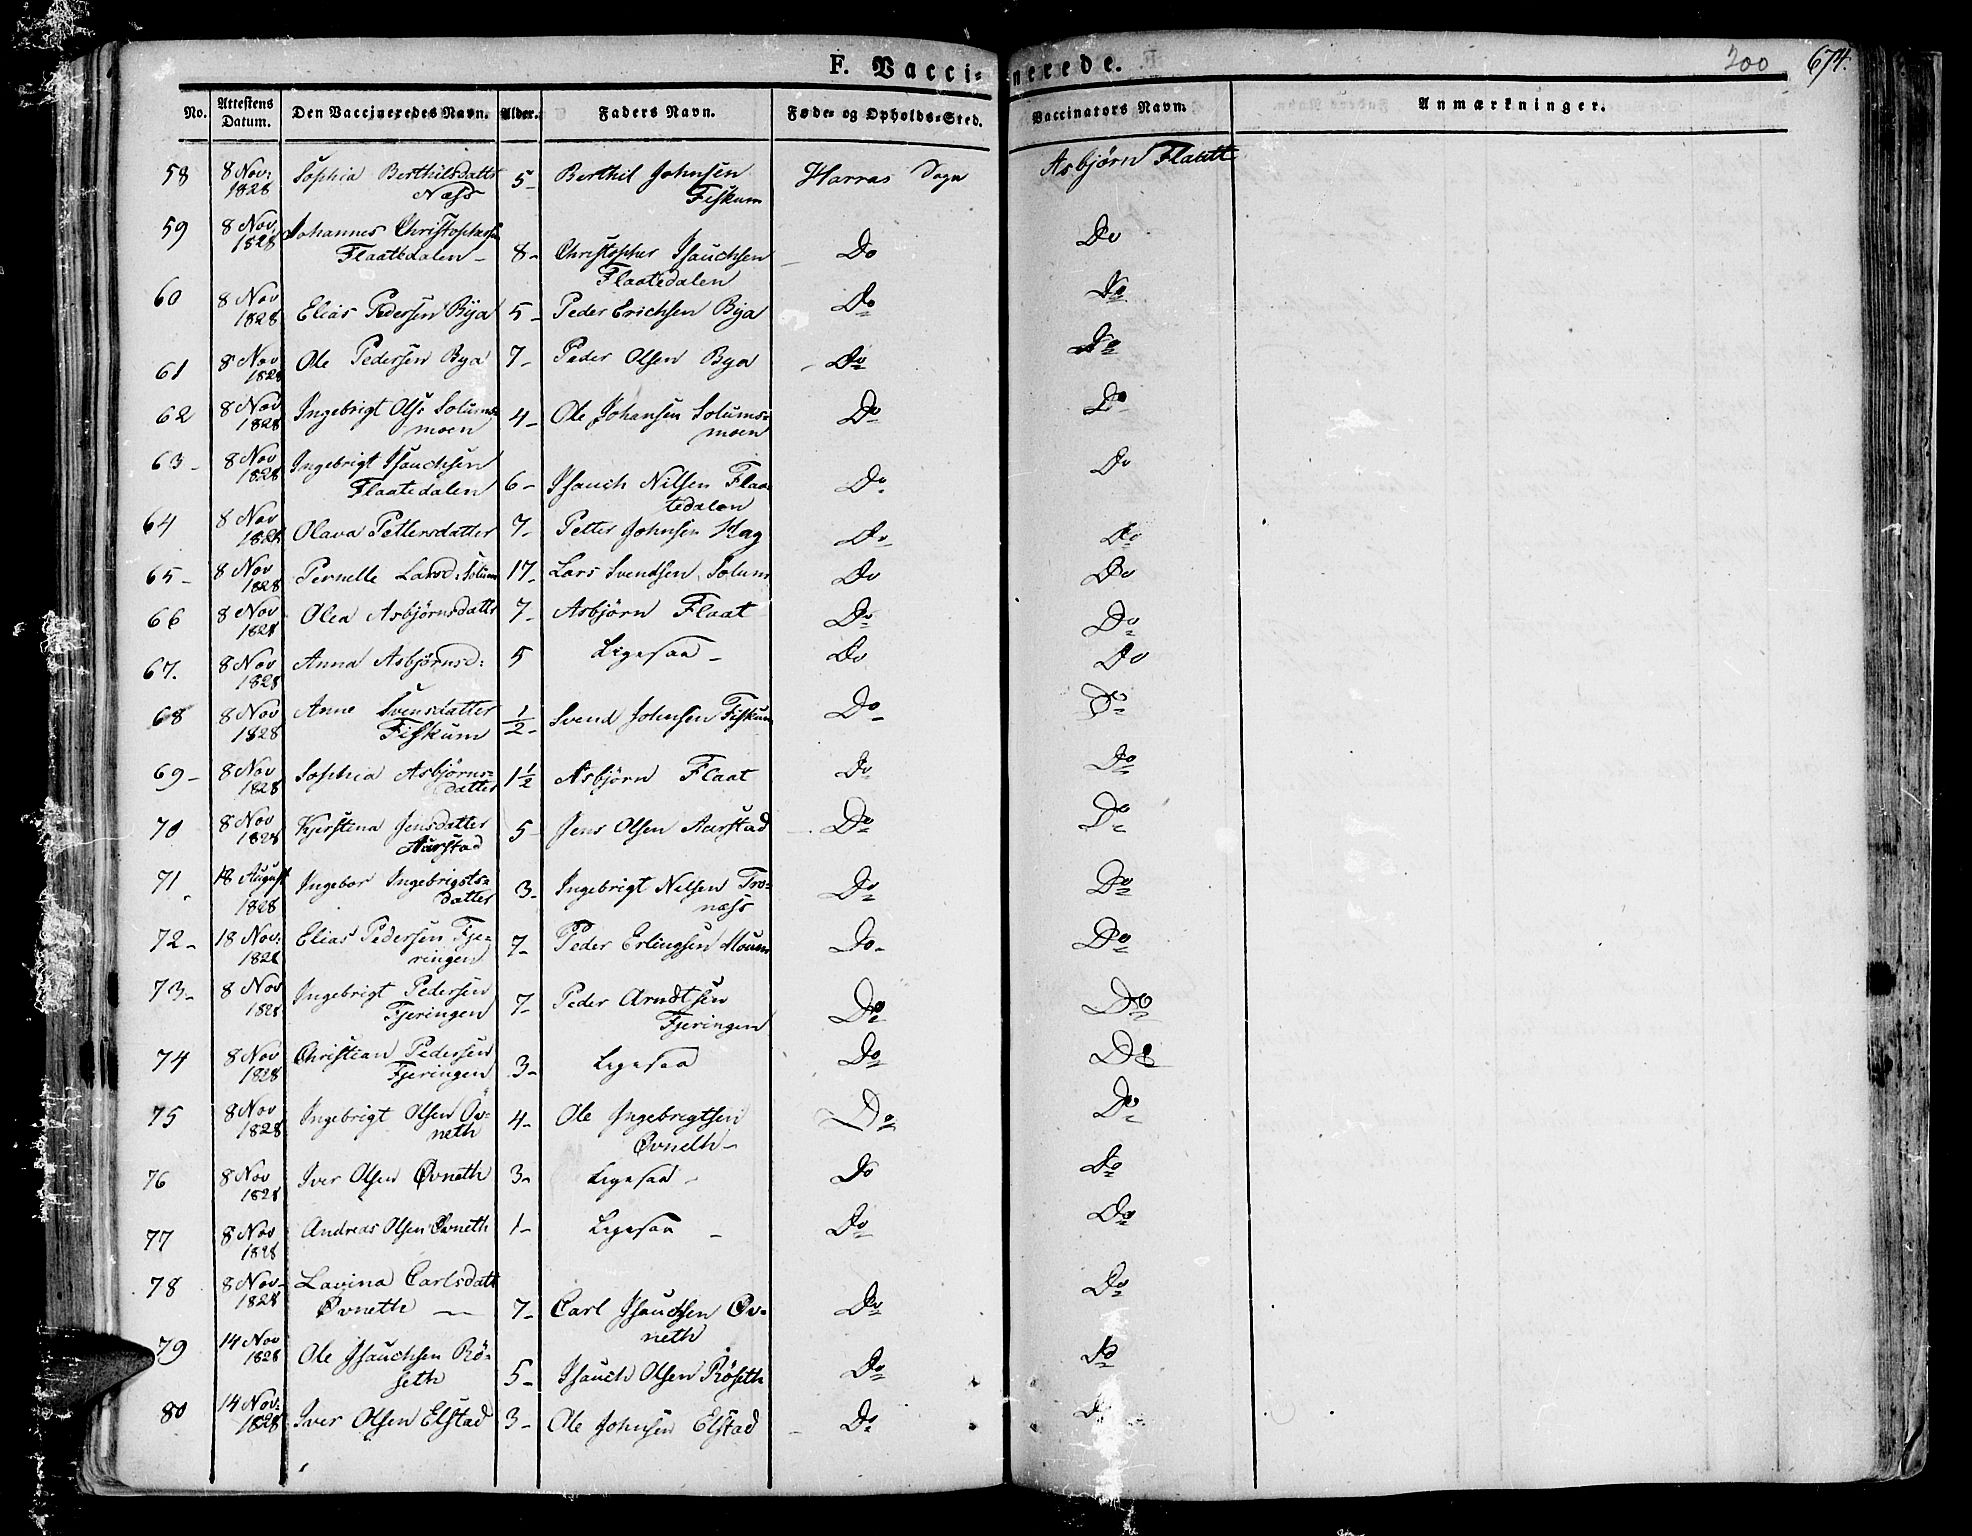 F. Vaccinerede.
200 674.
No. Attestens Datum. Den Vaccineredes Navn. Alder. Faders Navn. Føde- og Opholds-Sted. Vaccinators Navn. Anmærkninger.
58 8 Nov: 1828 Sophia Berthilsdattr Næss 5- Berthil Johnsen Fiskum Harras Sogn Asbjørn Flaatt
59 8 Nov. 1828 Johannes Christophersen Flaatedalen - 8- Christopher Isauchsen Flaatedalen Do Do
60 8 Nov 1828 Elias Pedersen Bya 5- Peder Erichsen Bya Do Do
61 8 Nov 1828 Ole Pedersen Bya 7- Peder Olsen Bya Do Do
62 8 Nov 1828 Ingebrigt Ols: Solums= moen 4- Ole Johansen Solums= moen Do Do
63- 8 Nov 1828 Ingebrigt Isauchsen Flaatedalen 6- Isauch Nilsen Flaa= tedalen Do Do
64 8 Nov 1828 Olava Pettersdatter 7- Petter Johnsen Hag Do Do
65- 8 Nov 1828 Pernelle Larsd: Solum 17- Lars Svendsen Solum Do Do
66 8 Nov 1828 Olea Asbjørnsdattr 7- Asbjörn Flaat Do Do
67. 8 Nov 1828 Anna Asbjörnsd: 5 Ligesaa - Do Do
68 8 Nov 1828 Anne Svensdatter Fiskum 1/2- Svend Johnsen Fiskum Do Do
69- 8 Nov 1828 Sophia Asbjörns= datter 1 1/2 Asbjörn Flaat Do Do
70 8 Nov 1828 Kjerstena Jensdatter Aarstad 5- Jens Olsen Aarstad Do Do
71. 18 August 1828 Ingebor Ingebrigts= datter 3- Ingebrigt Nilsen Tro= næss Do Do
72- 18 Nov: 1828 Elias Pedersen Fje= ringen 7- Peder Erlingsen Moum Do- Do
73- 8 Nov 1828 Ingebrigt Pedersen Fjeringen 7- Peder Arndtsen Fjeringen Do Do
74 8 Nov 1828 Christian Pedersen Fjeringen 3- Ligesaa Do Do
75 8 Nov 1828 Ingebrigt Olsen Öv= neth 4- Ole Ingebrigtsen Øvneth- Do Do
76 8 Nov 1828 Iver Olsen Øvneth 3- Ligesaa - Do Do
77 8 Nov 1828 Andreas Olsen Øvneth 1- Ligesaa - Do Do
78 8 Nov- 1828 Lavina Carlsdatt Øvneth - 7- Carl Isauchsen Øv= neth Do Do
79 14 Nov 1828 Ole Isauchsen Rö= seth 5- Isauch Olsen Röseth Do Do
80 14 Nov: 1828 Iver Olsen Elstad 3- Ole Johnsen Elstad Do Do